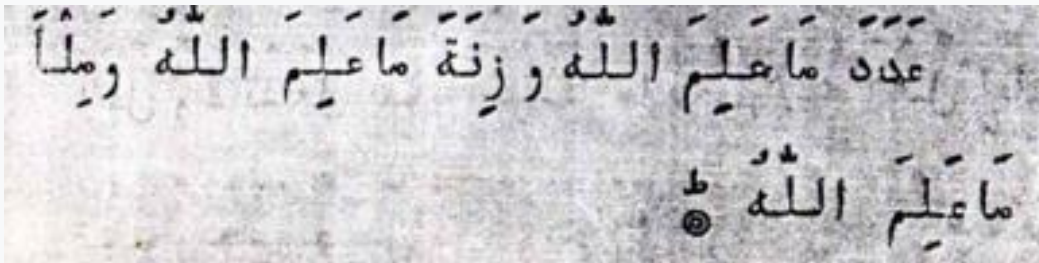 عَدَدَ مَا عَلِمَ اللّٰهُ وَ زِنَةَ مَا عَلِمَ اللّٰهُ وَمِلْأَ
مَا عَلِمَ اللّٰهُ ط